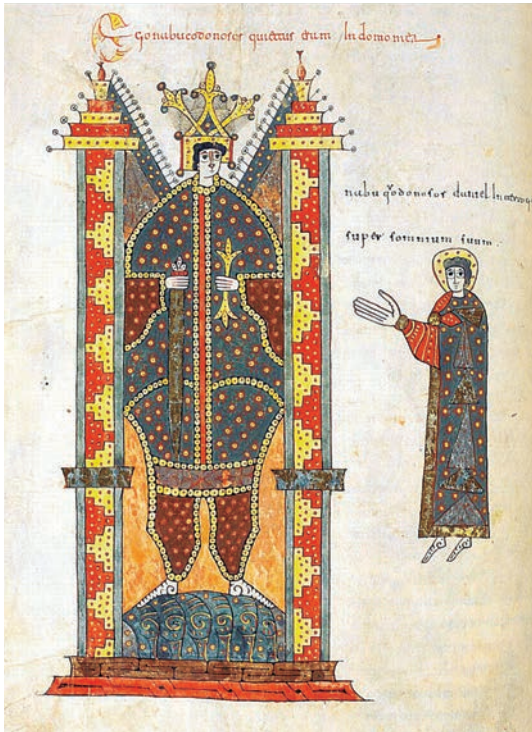 Ego nabucodonosor quietus eram In domo mea
nabuqodonosor daniel
super somnium suum.